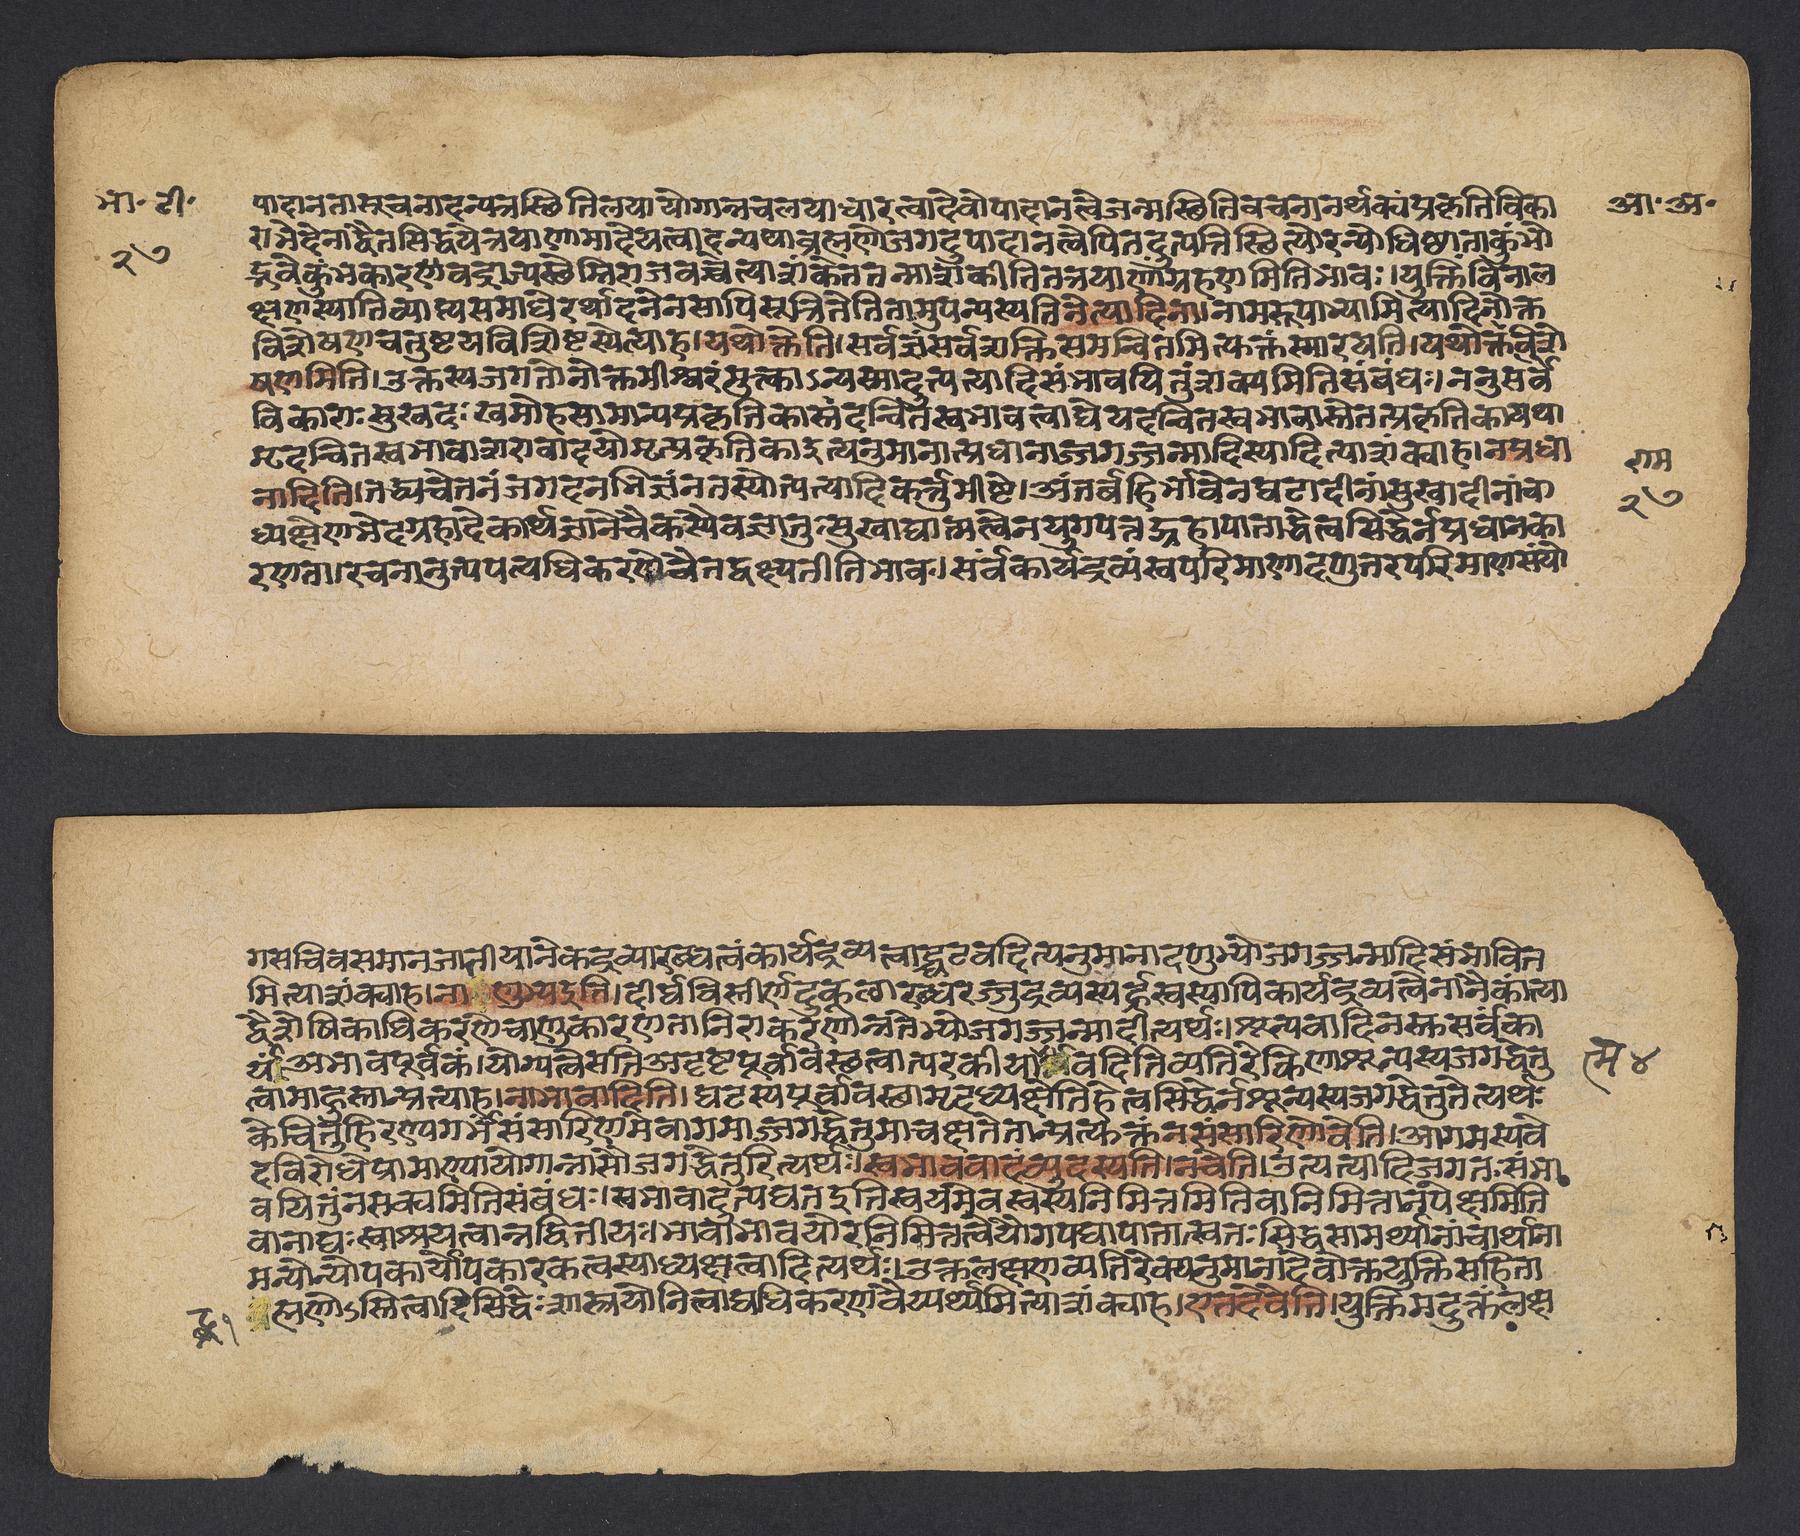 भा॰ टी॰
२७
आ॰ अ॰
पादानतासूचनादन्यत्रस्थितिलयायोगान्नचलयाधारत्वादेवोपादानत्वेजन्मस्थितिवचनानर्थक्यंप्रकृतिविका
राभेदेनाद्वैतसिद्धयेत्रयाणामादेयत्वादन्यथाब्रह्मणोजगदुपादानत्वेपितदुत्पत्तिस्थित्योरन्योधिष्ठाताकुंभो
द्भवेकुंभकारएवद्राज्यस्थेम्निराजवच्चेत्याशंकेततन्माशंकीतितत्रयाणांग्रहणमितिभावः।युक्तिंविनाल
क्षणस्यातिव्याप्त्यसमाधेरर्थादनेनसापिसूत्रितेतितामुपन्यस्यतिनेत्यादिना।नामरूपाभ्यामित्यादिनोक्त
विशेषणचतुष्टयविशिष्टस्येत्याह।यथोक्तेति।सर्वज्ञंसर्वशक्तिसमन्वितमित्यक्तंस्मारयति।यथोक्तविशे
षणमिति।उक्तस्यजगतोनोक्तमीश्वरंमुत्काऽन्यस्मादुत्पत्त्यादिसंभावयितुंशक्यमितिसंबंधः।ननुसर्वे
विकाराःसुखदुःखमोहसामान्यप्रकृतिकास्तदन्वितस्वभावत्वाद्येयदन्वितस्वभावास्तेतत्प्रकृतिकायथा
मृदन्वितस्वभावाशरावादयोमृत्प्रकृतिकाइत्यनुमानात्प्रधानाज्जगज्जन्मादिस्यादित्याशंक्याह।नप्रधा
नादिति।तद्ध्यचेतनंजगदनभिज्ञंनतस्योत्पत्त्यादिकर्त्तुमीष्टे।अंतर्बहिर्भावेनघटादीनांसुखादीनांचा
ध्यक्षेणभेदग्रहादेकार्थज्ञानेचैकस्यैवज्ञातुःसुखाद्यात्मत्वेनयुगपन्नद्ग्रहापाताद्धेत्वसिद्धेर्नप्रधानका
रणता।रचनानुत्पपत्यधिकरणेचैतद्वक्ष्यतीतिभावः।सर्वकार्यद्रव्यंस्वपरिमाणादणुतरपरिमाणसंयो
राम
२७
गसचिवसमानजातीयानेकद्रव्यारब्धत्वंकार्यद्रव्यत्वाद्घटवदित्यनुमानादणुभ्योजगज्जन्मादिसंभावित
मित्याशंक्याह।नाणुभ्यइति।दीर्घविस्तीर्णदुकूलारब्धरज्जुद्रव्यस्यह्रस्वस्यापिकार्यद्रव्यत्वेनानैकांत्या
द्वैशेषिकाधिकरणेचाणुकारणतानिराकरणान्नतेभ्योजगज्जन्मादीत्यर्थः।शून्यवादिनस्तसर्वका
र्यंअभावपूर्वकं।योग्यत्वेसतिअदृष्टपूर्वावस्थत्वात्परकीयावदितिव्यतिरेकिणाशून्यस्यजगद्धेतु
त्म ४
त्वामाहुस्तान्प्रत्याह।नाभावादिति।घटस्यपूर्वावस्थामृदध्यक्षेतिहेत्वसिद्धेर्नशून्यस्यजगद्धेतुतेत्यर्थः
केचित्तुहिरण्यगर्भंसंसारिणमेवागमाज्जगद्धेतुमाचक्षतेतान्प्रत्यक्तंनसंसारिणोवेति।आगमस्यवे
दविरोधेप्रामाण्यायोगान्नासौजगद्धेतुरित्यर्थः।स्वभाववादंव्युदस्यति।नचेति।उत्पत्यादिजगतःसंभा
वयितुंनसक्यमितिसंबंधः।स्वभावादुत्पद्यतइतिस्वयमेवस्वस्यनिमित्तमितिवानिमित्तानपेक्षमिति
वानाद्यःस्वाश्रयत्वान्नद्वितीयः।भावाभावयोरनिमित्तत्वेयोगपद्यापातात्स्वतःसिद्धसामर्थ्यानांचार्थाना
मन्योन्योपकार्योपकारकत्वस्याध्यक्षत्वादित्यर्थः।उक्तलक्षणव्यतिरेक्यनुमानादेवोक्तयुक्तिसहिता
ह्मणोऽस्तित्वादिसिद्धेःशास्त्रयोनित्वाद्यधिकरणंवैय्यर्थ्यमित्याशंक्याह।एतदेवेति।युक्तिमदुक्तंलक्ष